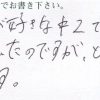 でお書き下さい。
が好きな中2で
たのですが、と
す。